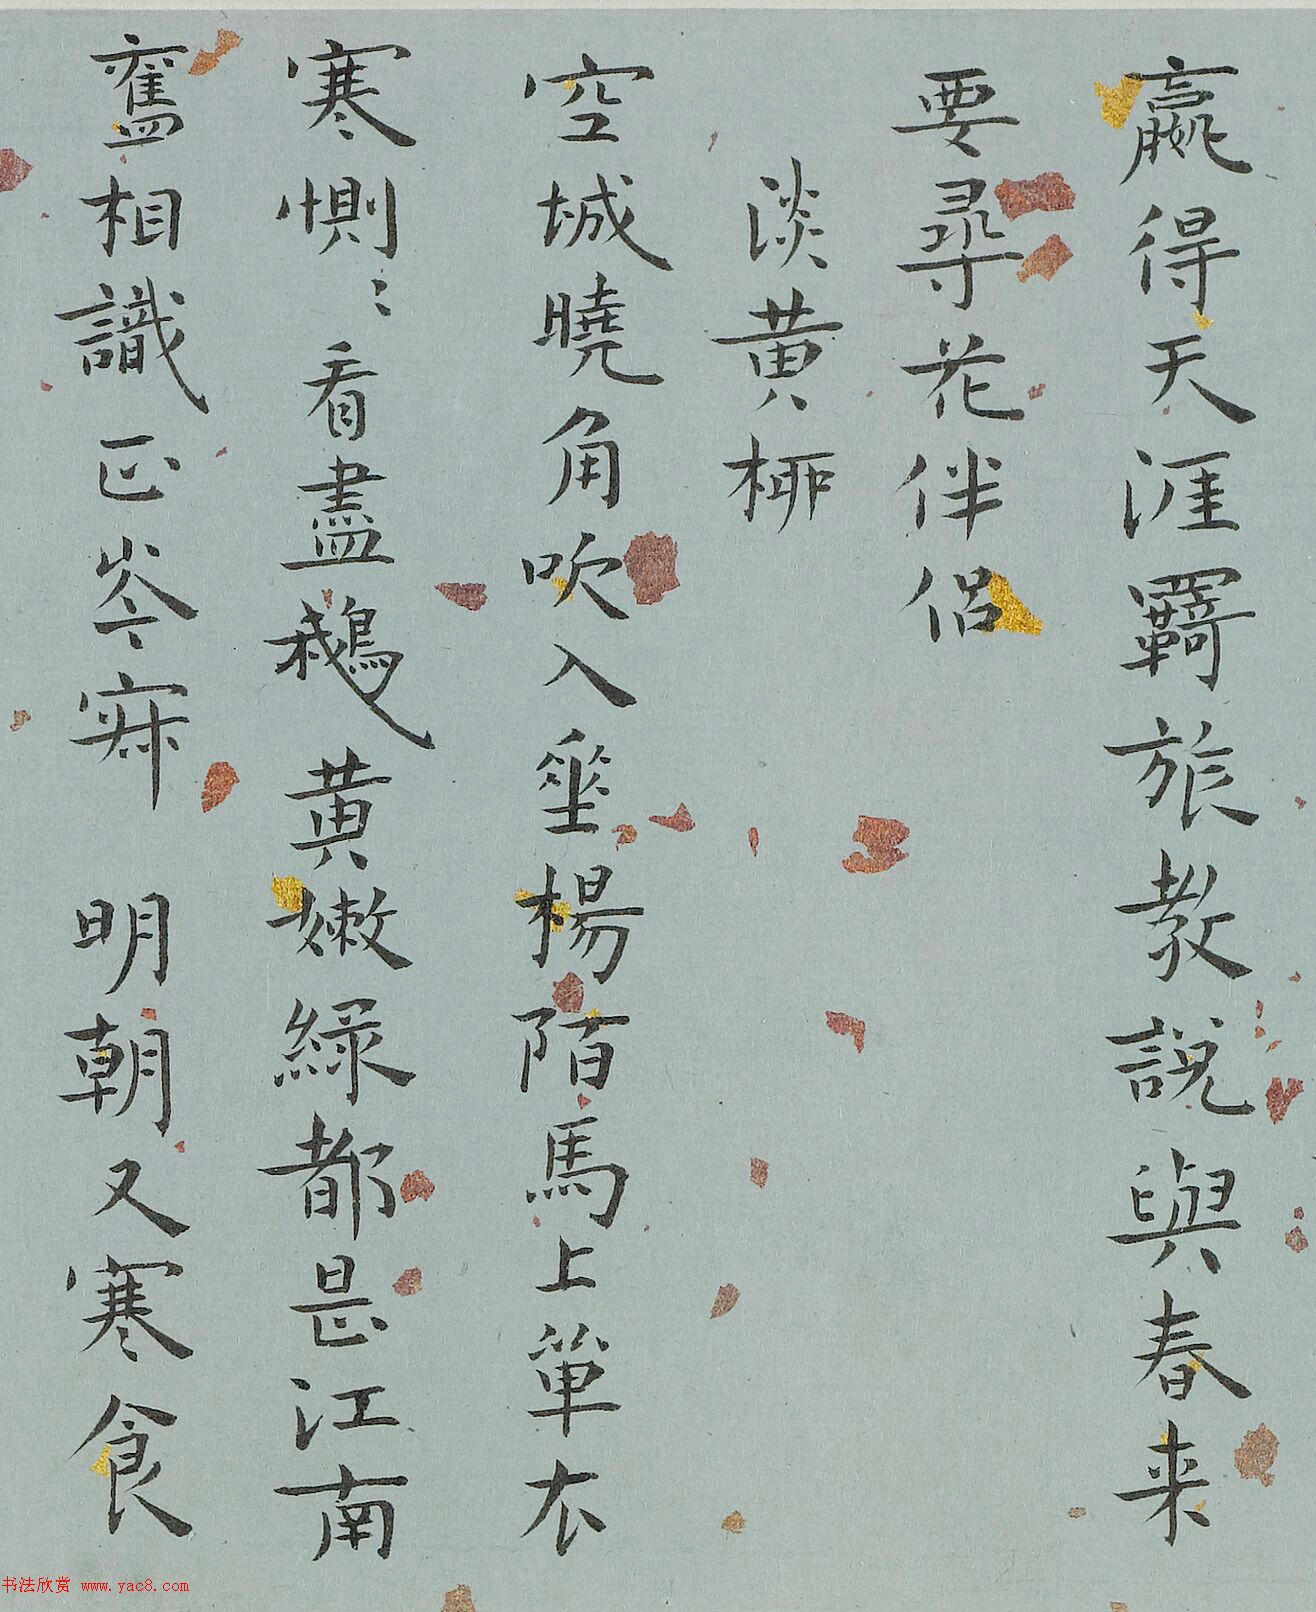 嬴得天涯羈旅教說與春来
要尋花伴侣
淡黄栁
空城曉角吹入垂楊陌馬上單衣
寒惻〻看盡鵝黄嫩緑都是江南
舊相識正岑寂 明朝又寒食
书法欣赏 www.yac8.com